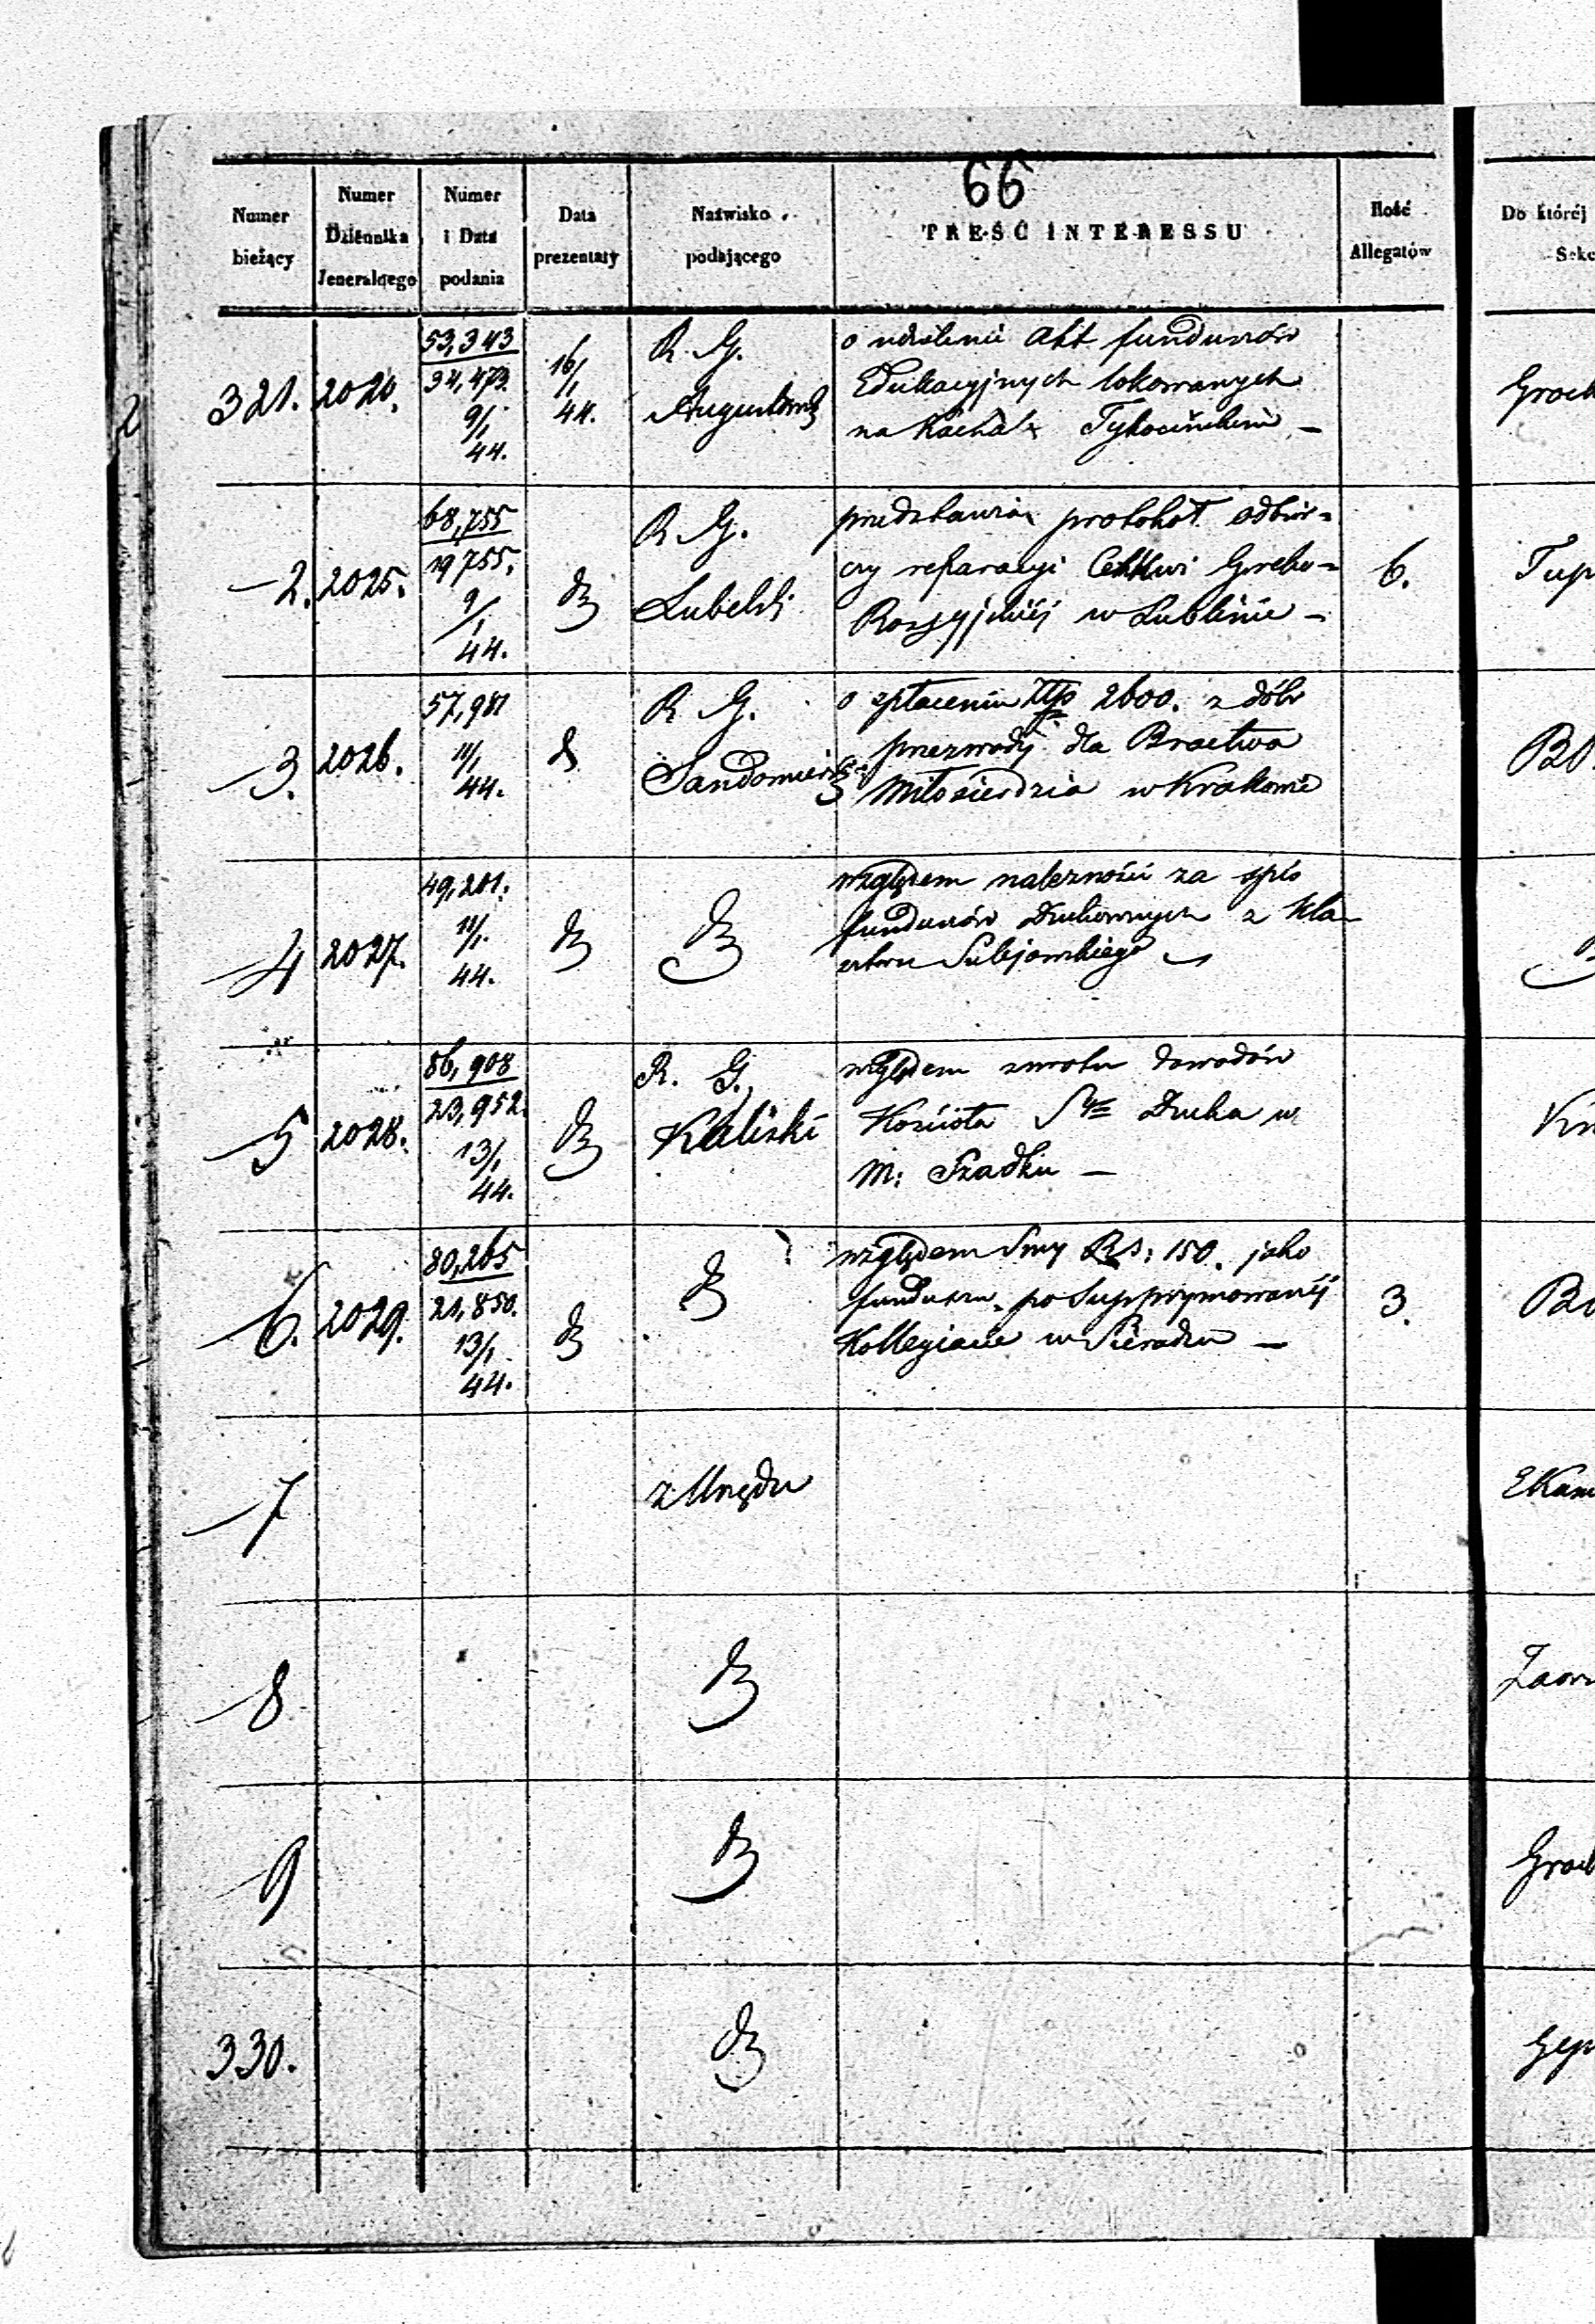 66
Numer bieżący
Numer Dziennika Jeneralnego
Numer i Data podania
Data prezentaty
Nazwisko podającego
TREŚĆ INTERESSU
Ilość Allegatów
Do której Sekc
321. 2020. 53,343 34,473. 9/1 44. 16/1 44. R. G. Augustows
o udzielenie akt funduszów
Edukacyjnych lokowanych
na Tykocińskim –
2. 2025. 68,755 19755. 9/1 44. R. G. Lubelski 6.
przedstawia protokół odbior=
czy reparacyi Cerkwi Greko=
Rossyjskiéj w Lublinie –
3. 2026. 57,981 11/1 44. R. G. Sandomiers
o spłaceniu Złp 2600. z dóbr
Przezwody dla Bractwa
Miłosierdzia w Krakowie
4 2027. 49,201. 11/1. 44.
względem należności za spis
funduszów Duchownych z Kla
sztoru Sulejowskiego –
5 2028. 86,908 23,952. 13/1 44. R. G. Kaliski
względem zwrotu dowodów
Kościoła Sgo Ducha w
M: Szadku –
6. 2029. 80,265 21,850. 13/1 44. 3.
względem Smy Rs: 150. jako
funduszu po Supprymowanéj
Kollegiacie w Sieradzu –
7 z Urzędu
8
9
330.